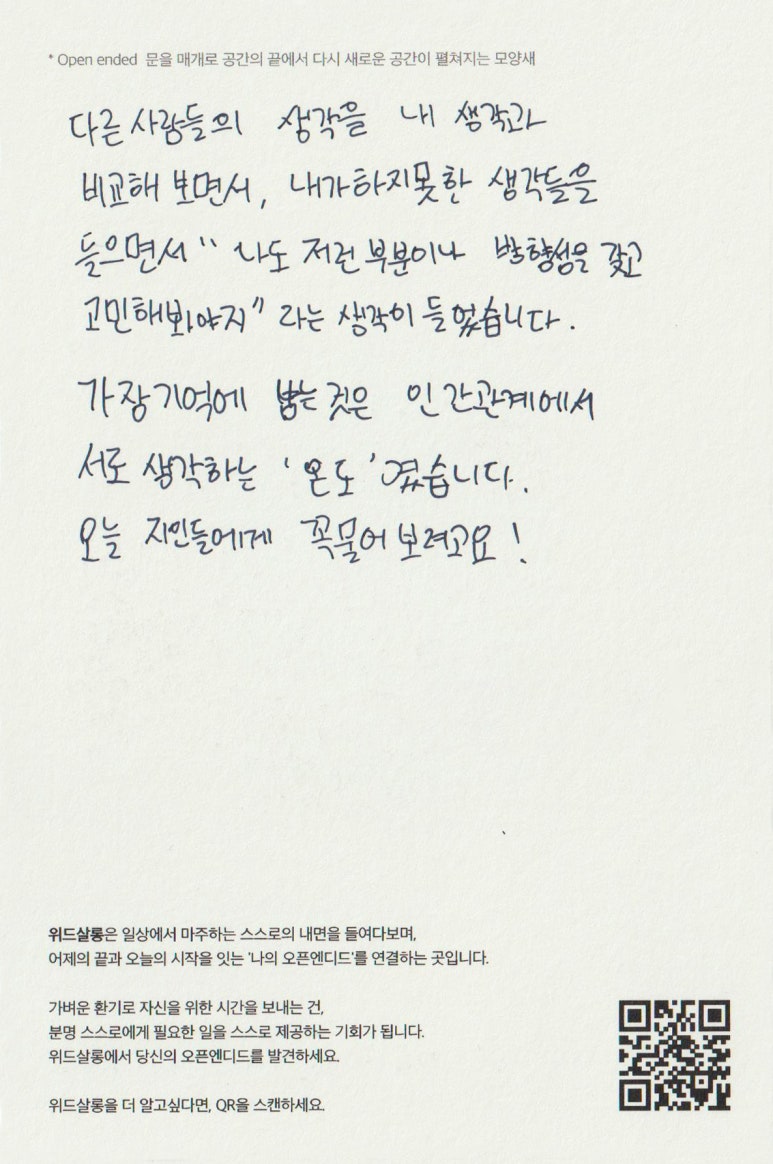 * Open ended 문을 매개로 공간의 끝에서 다시 새로운 공간이 펼쳐지는 모양새
다른 사람들의 생각을 내 생각과
비교해 보면서, 내가하지못한 생각들을
들으면서 " 나도 저런 부분이나 방향성을 갖고
고민해봐야지" 라는 생각이 들었습니다.
가장기억에 남는것은 인간관계에서
서로 생각하는 '온도'였습니다.
오늘 지인들에게 꼭물어보려고요!
위드살롱은 일상에서 마주하는 스스로의 내면을 들여다보며,
어제의 끝과 오늘의 시작을 잇는 '나의 오픈엔디드'를 연결하는 곳입니다.
가벼운 환기로 자신을 위한 시간을 보내는 건,
분명 스스로에게 필요한 일을 스스로 제공하는 기회가 됩니다.
위드살롱에서 당신의 오픈엔디드를 발견하세요.
위드살롱을 더 알고싶다면, QR을 스캔하세요.